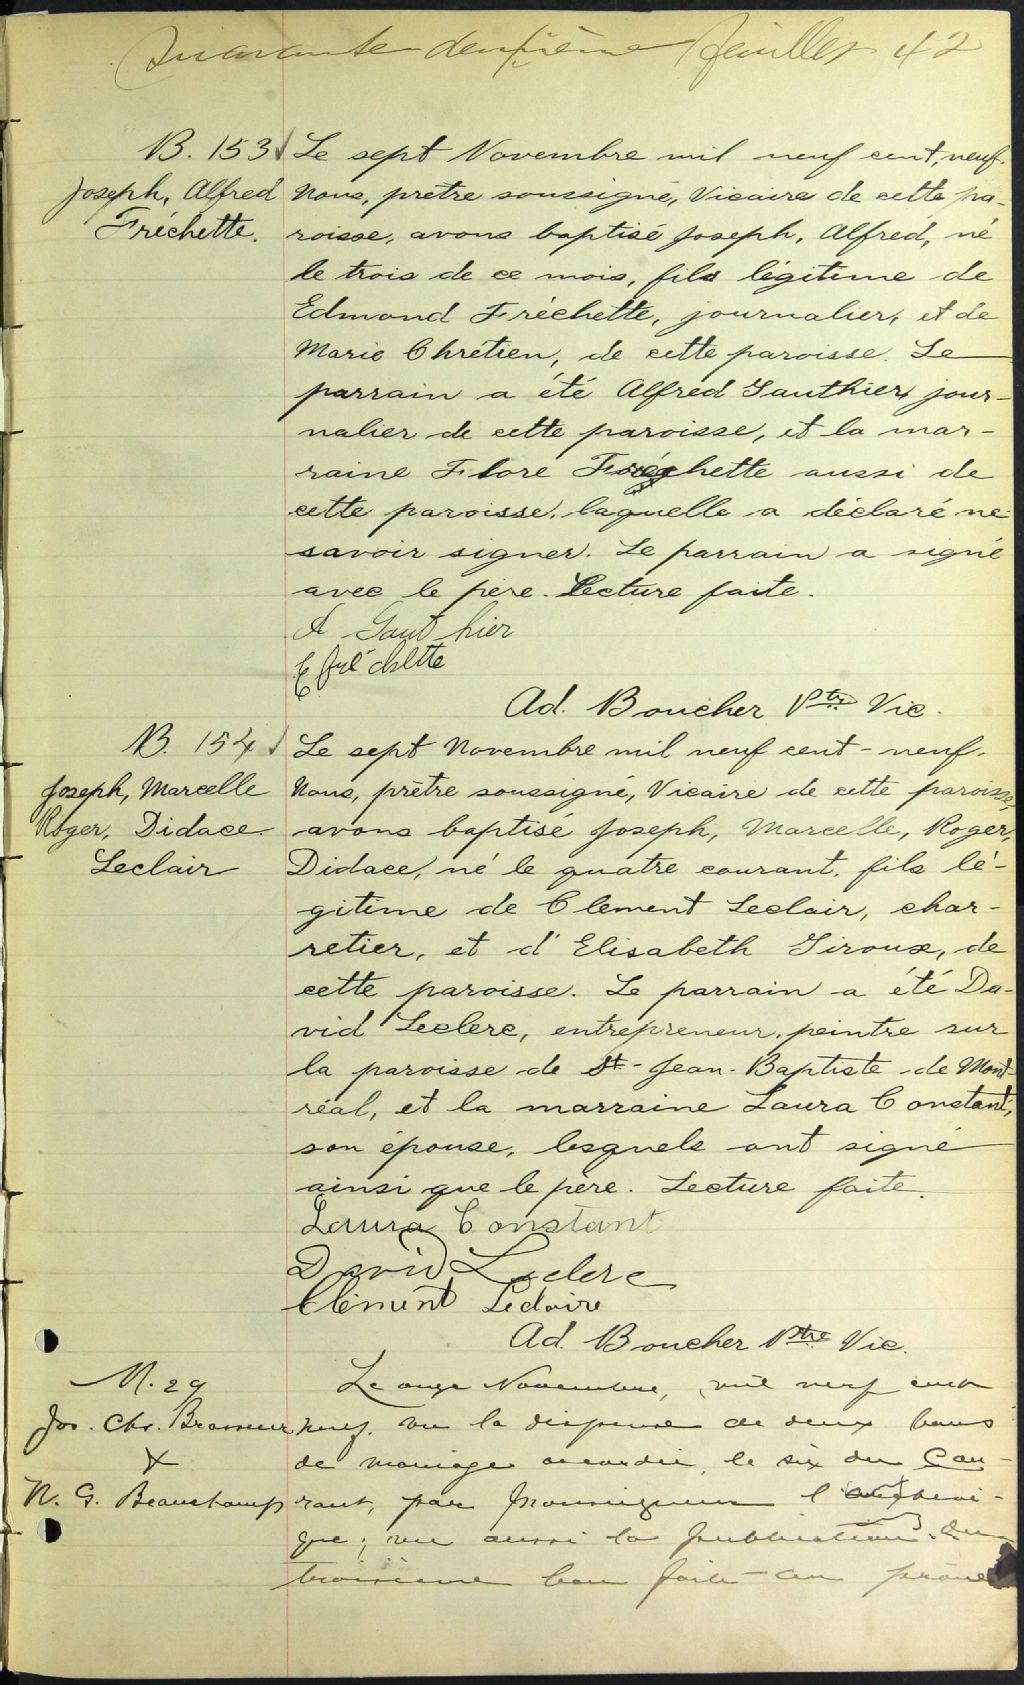 Quarante deuxième feuillet 42
B. 153
Joseph, Alfred
Fréchette.
Le sept Novembre mil neuf cent, neuf.
Nous, prêtre soussigné, Vicaire de cette pa-
roisse, avons baptisé Joseph, Alfred, né
le trois de ce mois, fils légitime de
Edmond Fréchette, journalier, et de
Marie Chrétien, de cette paroisse. Le
parrain a été Alfred Gauthier, jour-
nalier de cette paroisse, et la mar-
raine Flore Fréchette aussi de
cette paroisse, laquelle a déclaré ne
savoir signer. Le parrain a signé
avec le père. Lecture faite.
A Gauthier
E fréchette
Ad. Boucher Ptre Vic.
B. 154
Joseph, Marcelle
Roger, Didace
Leclair
Le sept Novembre mil neuf cent-neuf.
Nous, prêtre soussigné, Vicaire de cette paroisse,
avons baptisé Joseph, Marcelle, Roger,
Didace, né le quatre courant, fils lé-
gitime de Clement Leclair, char-
retier, et d'Elisabeth Giroux, de
cette paroisse. Le parrain a été Da-
vid Leclerc, entrepreneur, peintre sur
la paroisse de St-Jean-Baptiste de Mont-
réal, et la marraine Laura Constant,
son épouse, lesquels ont signé
ainsi que le père. Lecture faite.
Laura Constant
David Leclerc
Clément Leclaire
Ad. Boucher Ptre Vic.
M. 29
Jos. Chs. Brasseur
X
N. G. Beauchamp
Le onze Novembre, mil neuf cent
neuf. vu la dispense de deux bans
de mariage accordée, le six du cou-
rant, par Monseigneur l'archevê-
que; vu aussi la publication du
troisième ban faite au prône